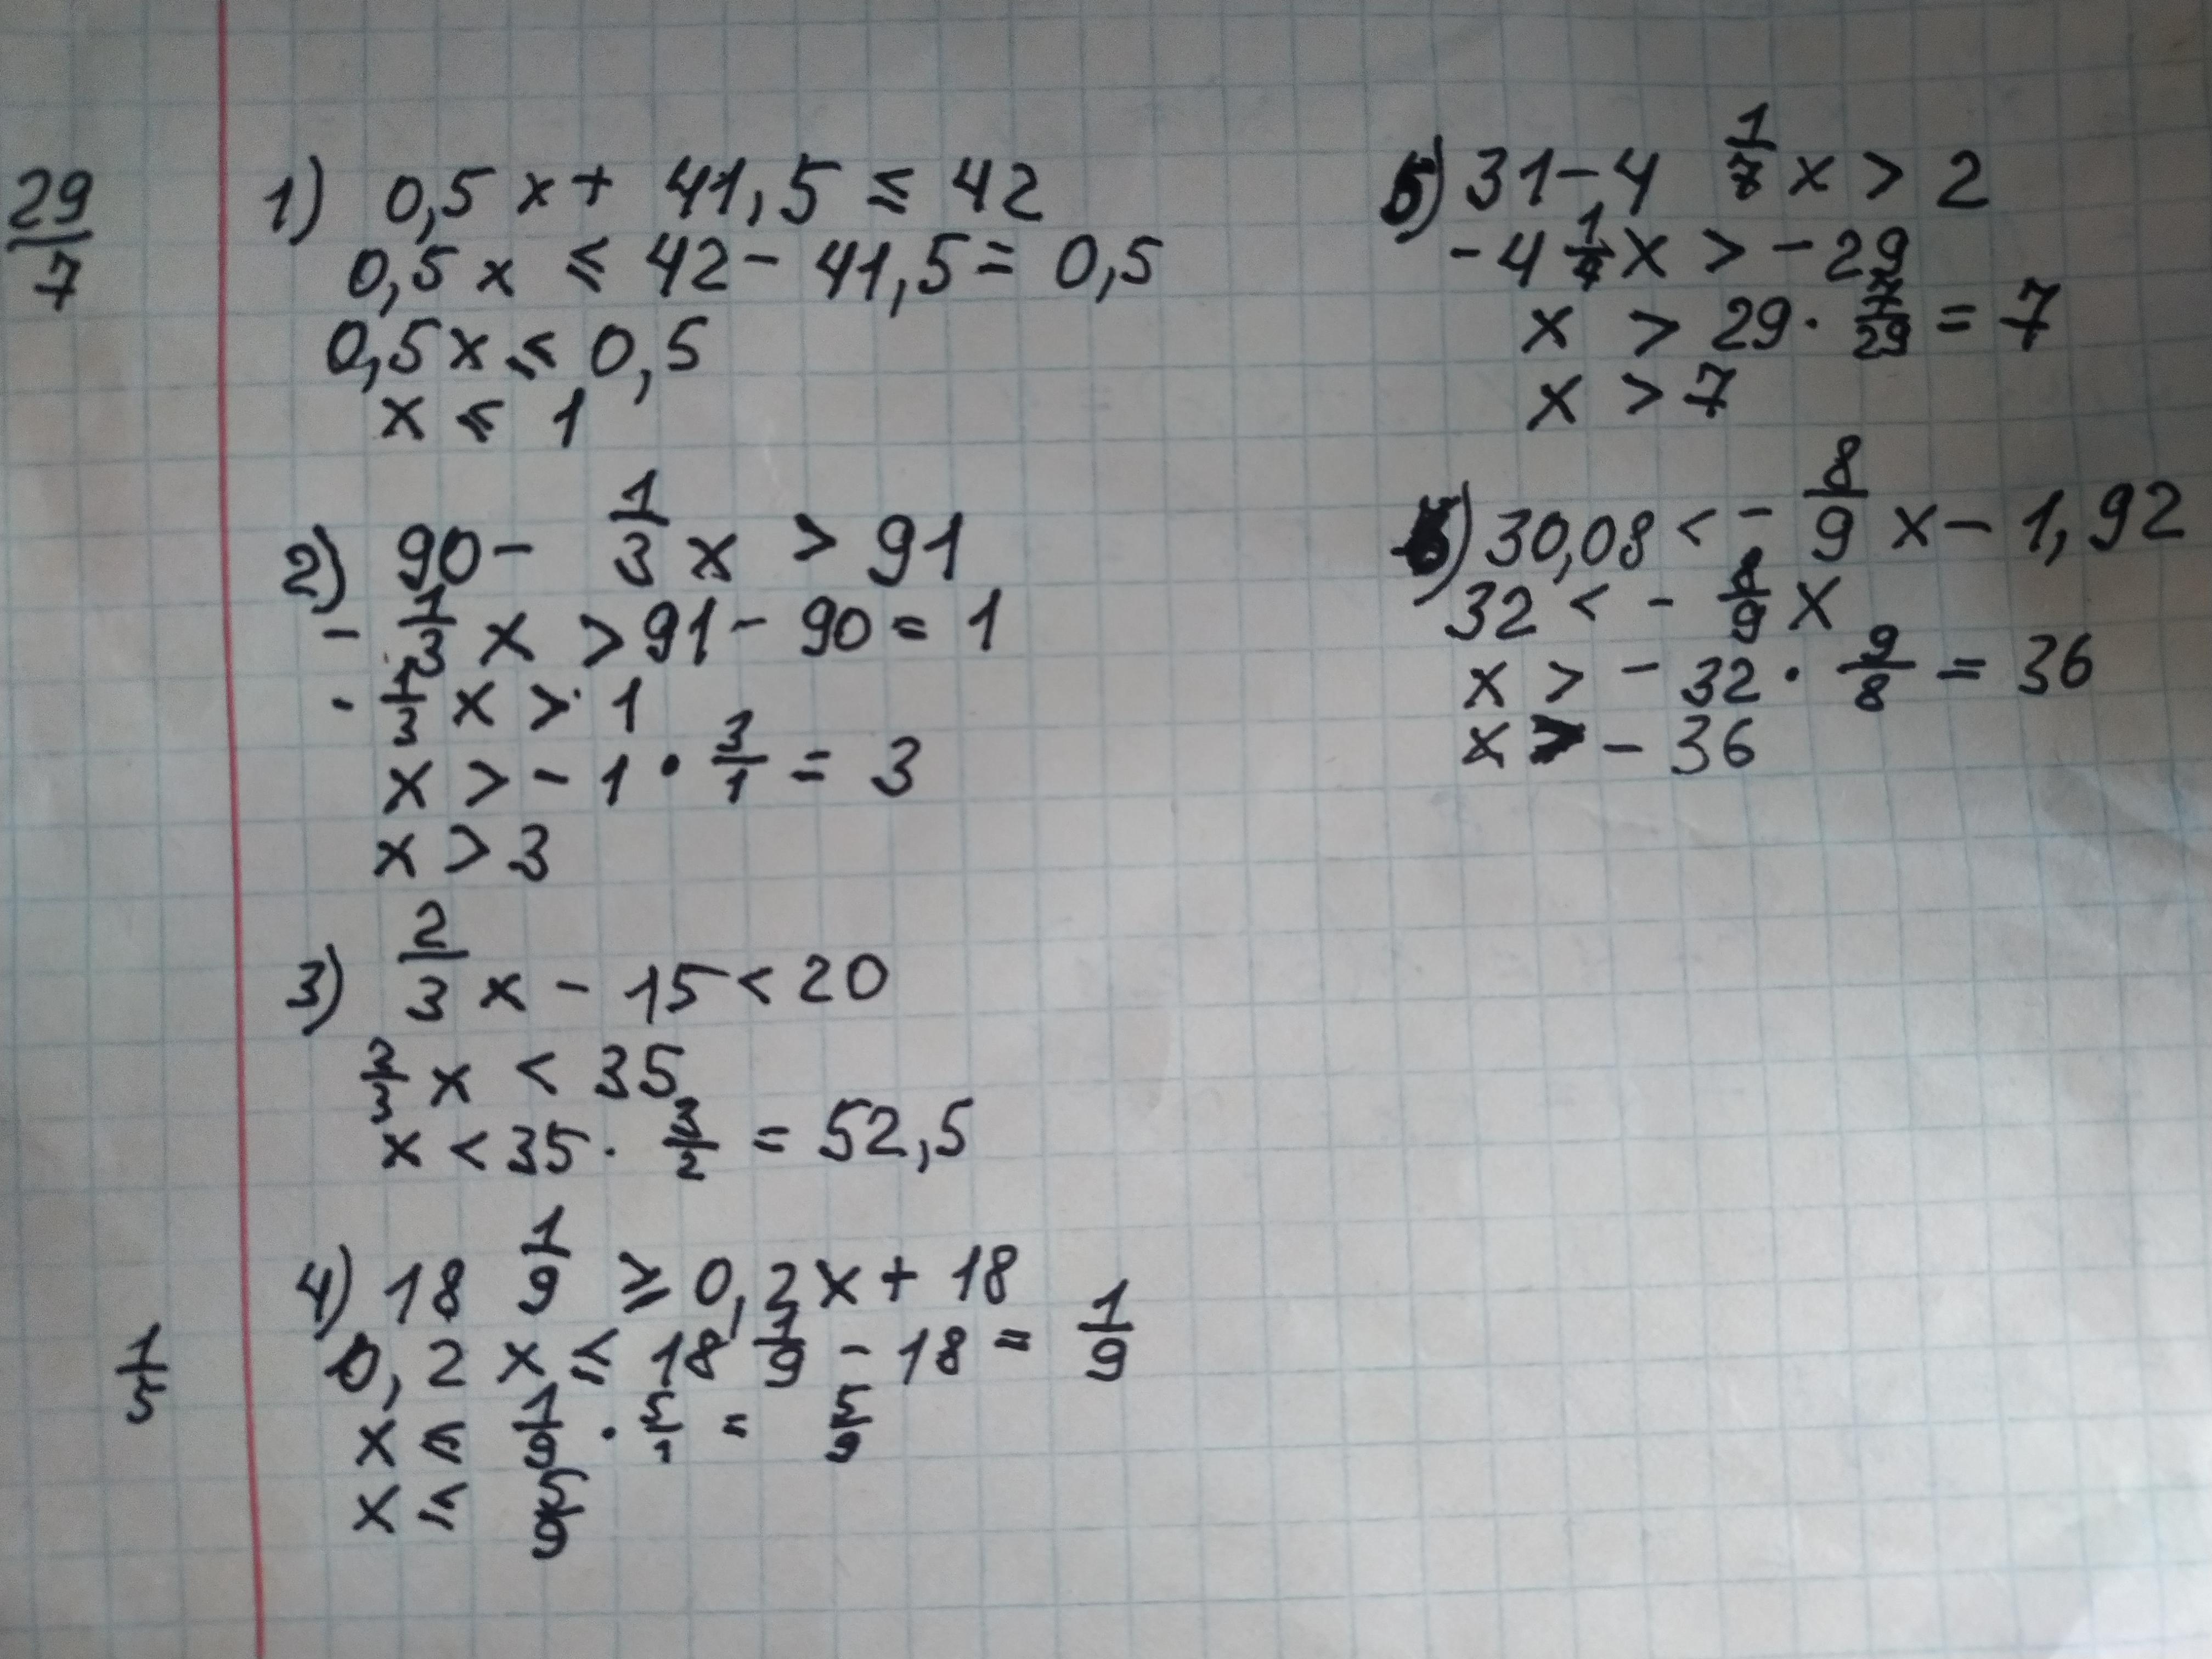 29/7
1) 0,5x + 41,5 ≤ 42
0,5x ≤ 42 - 41,5 = 0,5
0,5x ≤ 0,5
x ≤ 1
2) 90 - 1/3 x > 91
- 1/3 x > 91 - 90 = 1
- 1/3 x > 1
x > - 1 · 3/1 = 3
x > 3
3) 2/3 x - 15 < 20
2/3 x < 35
x < 35 · 3/2 = 52,5
4) 18 1/9 ≥ 0,2x + 18
0,2x ≤ 18 1/9 - 18 = 1/9
1/5
x ≤ 1/9 · 5/1 = 5/9
x ≤ 5/9
5) 31 - 4 1/7 x > 2
- 4 1/7 x > - 29
x > 29 · 7/29 = 7
x > 7
6) 30,08 < - 8/9 x - 1,92
32 < - 8/9 x
x > - 32 · 9/8 = 36
x > - 36